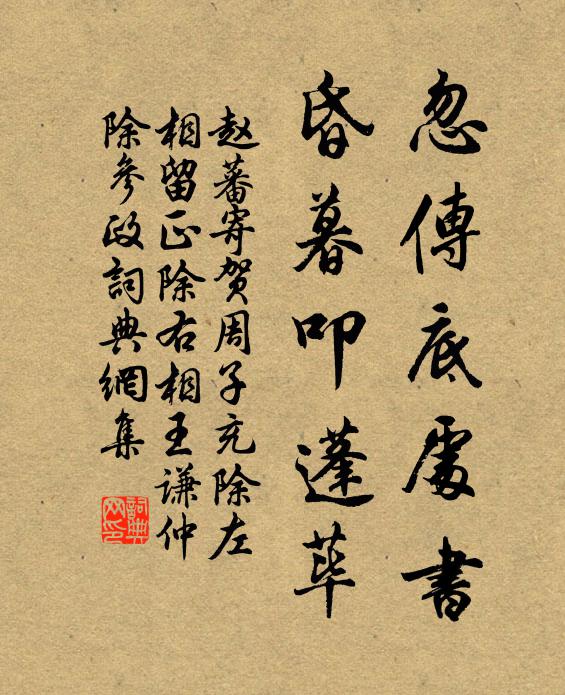 忽傳底處書
昏暮叩蓬荜
赵蕃寄贺周子充除左
相留正除右相王谦仲
除參政詞典網集
詞典网印